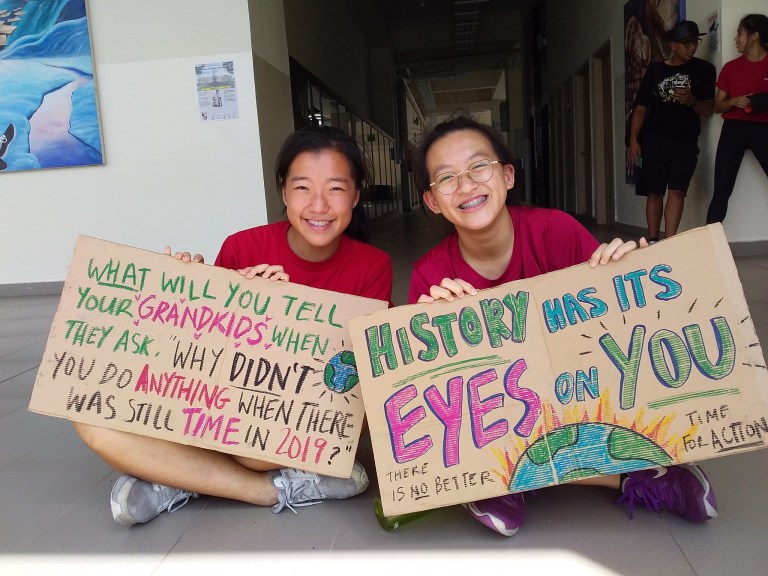 WHAT WILL YOU TELL
YOUR GRANDKIDS WHEN
THEY ASK, "WHY DIDN'T
YOU DO ANYTHING WHEN THERE
WAS STILL TIME IN 2019?"
HISTORY HAS ITS
EYES ON YOU
THERE
IS NO BETTER
TIME
FOR ACTION